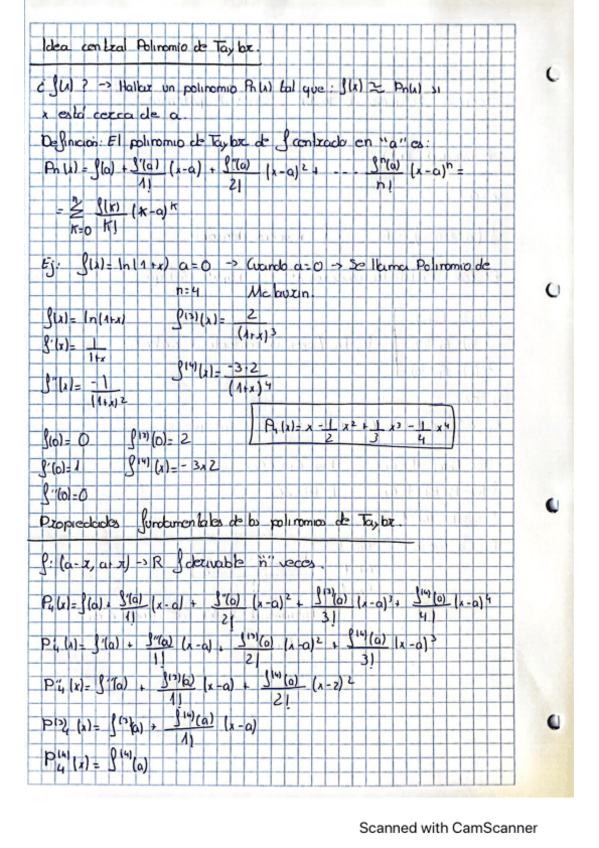 Idea central Polinomio de Taylor.
¿ f(x) ? → Hallar un polinomio Pn(x) tal que: f(x) ≈ Pn(x) si
x está cerca de a.
Definición: El polinomio de Taylor de f centrado en "a" es:
Pn(x) = f(a) + f'(a)/1! (x-a) + f''(a)/2! (x-a)² + ... fⁿ(a)/n! (x-a)ⁿ =
= Σ_{K=0}^{n} f(x)/K! (x-a)^K
Ej: f(x) = ln(1+x) a=0 → Cuando a=0 → Se llama Polinomio de
n=4 Mclaurin.
f(x) = ln(1+x) f⁽³⁾(x) = 2/(1+x)³
f'(x) = 1/1+x
f''(x) = -1/(1+x)² f⁽⁴⁾(x) = -3·2/(1+x)⁴
P₄(x) = x - 1/2 x² + 1/3 x³ - 1/4 x⁴
f(0) = 0 f⁽³⁾(0) = 2
f'(0) = 1 f⁽⁴⁾(x) = -3x2
f''(0)=0
Propiedades fundamentales de los polinomios de Taylor.
f: (a-x, a+x) → R f derivable "n" veces.
P₄(x) = f(a) + f'(a)/1! (x-a) + f''(a)/2! (x-a)² + f⁽³⁾(a)/3! (x-a)³ + f⁽⁴⁾(a)/4! (x-a)⁴
P'₄(x) = f'(a) + f''(a)/1! (x-a) + f⁽³⁾(a)/2! (x-a)² + f⁽⁴⁾(a)/3! (x-a)³
P''₄(x) = f''(a) + f⁽³⁾(a)/1! (x-a) + f⁽⁴⁾(a)/2! (x-2)²
P⁽³⁾₄(x) = f⁽³⁾(a) + f⁽⁴⁾(a)/1! (x-a)
P⁽⁴⁾₄(x) = f⁽⁴⁾(a)
Scanned with CamScanner